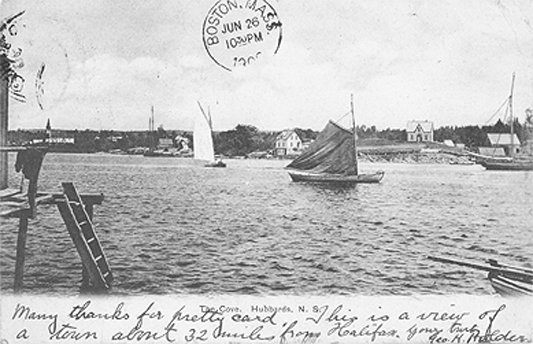 BOSTON, MASS.
JUN 26
10 30 PM
The Cove. Hubbards, N. S.
Many thanks for pretty card This is a view of
a town about 32 miles from Halifax. Your
Geo. H. Holden